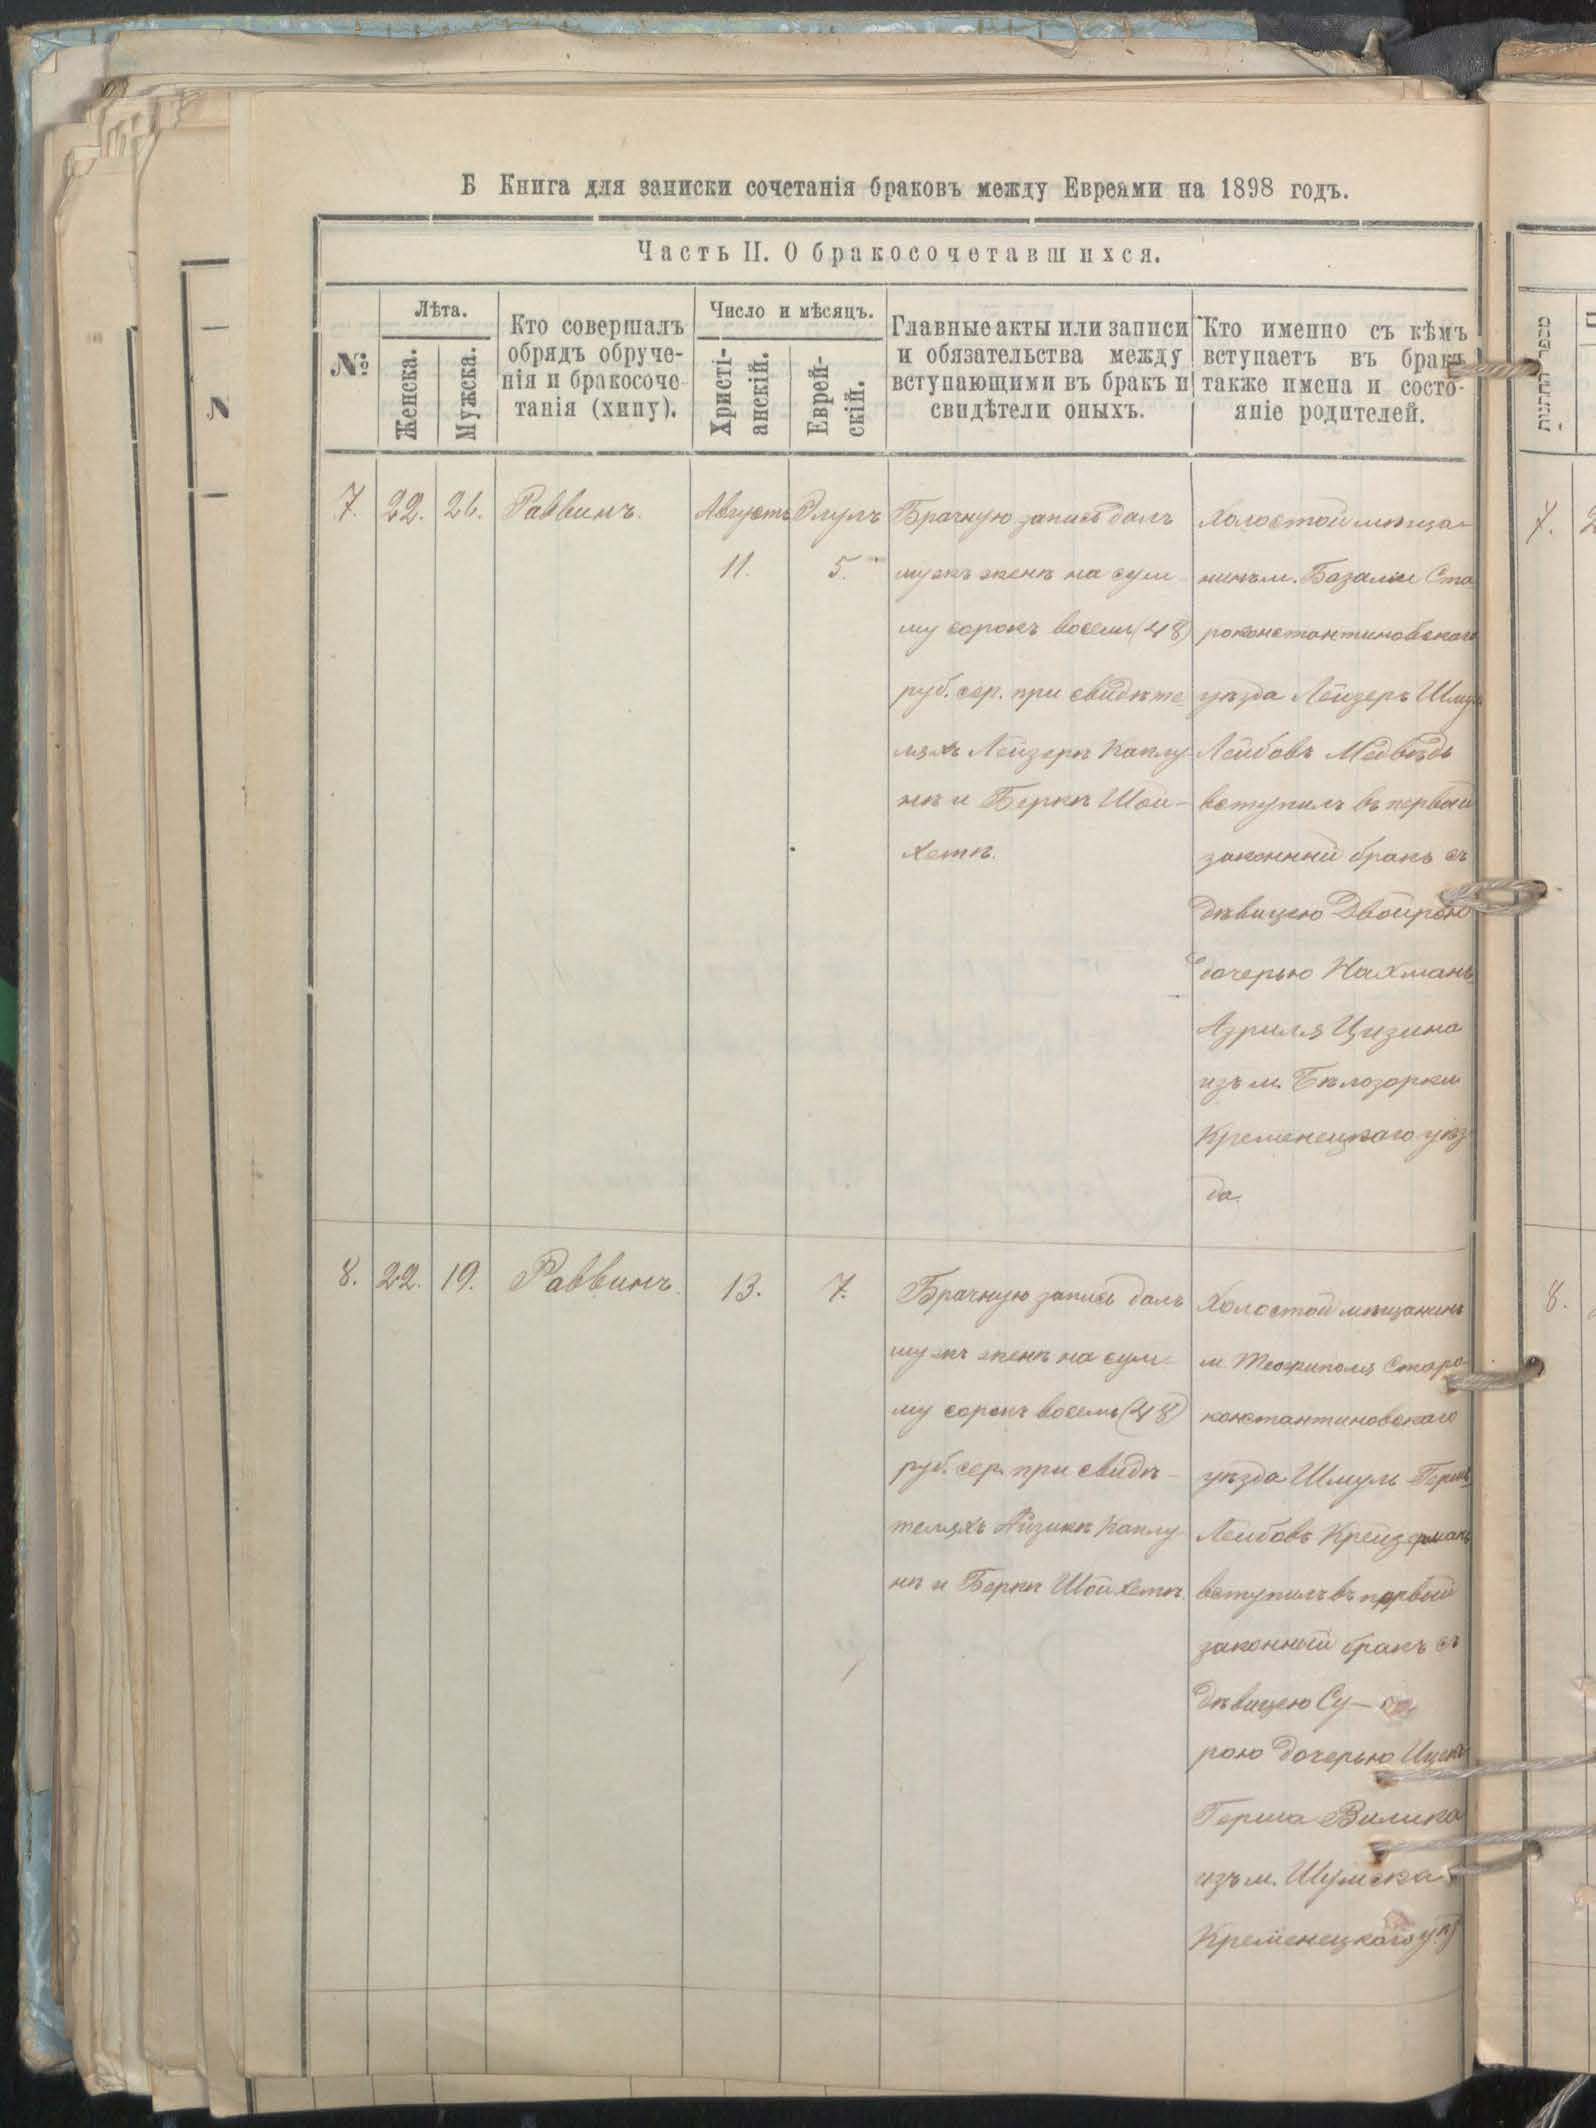 Б Книга для записки сочетанія браковъ между Евреями на 1898 годъ.
Часть II. О бракосочетавшихся.
№
Лѣта.
Женска.
Мужска.
Кто совершалъ
обрядъ обруче-
нія и бракосоче-
танія (хипу).
Число и мѣсяцъ.
Христі-
анскій.
Еврей-
скій.
Главные акты или записи
и обязательства между
вступающими въ бракъ и
свидѣтели оныхъ.
Кто именно съ кѣмъ
вступаетъ въ бракъ
также имена и состо-
яніе родителей.
7.
22.
26.
Раввинъ.
Августъ
11.
Элулъ
5.
Брачную запись далъ
мужъ женѣ на сум-
му сорокъ восемь (48)
руб. сер. при свидѣте-
ляхъ Лейзерѣ Каплу-
нѣ и Беркѣ Шой-
хетѣ.
Холостой мѣща-
нинъ м. Базаліи Ста-
роконстантиновскаго
уѣзда Лейзеръ
Лейбовъ Медвѣдь
вступилъ въ первый
законный бракъ съ
дѣвицею Двойрою
дочерью Нахманъ
Азриля Цизина
изъ м. Бѣлозорки
Кременецкаго уѣз-
да.
8.
22.
19.
Раввинъ.
13.
7.
Брачную запись далъ
мужъ женѣ на сум-
му сорокъ восемь (48)
руб. сер. при свидѣ-
теляхъ Айзикѣ Каплу-
нѣ и Беркѣ Шойхетѣ.
Холостой мѣщанинъ
м. Теофиполя Старо-
константиновскаго
уѣзда Шмуль Гершъ
Лейбовъ Крейзерманъ
вступилъ въ первый
законный бракъ съ
дѣвицею Су-
рою дочерью Ицекъ
Герша Вилика
изъ м. Шумска
Кременецкаго уѣз
מספר החתונות
7.
8.